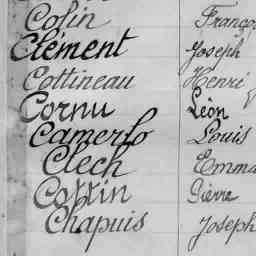 Colin Franço
Clément Joseph
Cottineau Henri
Cornu Léon
Camerlo Louis
Clech Emma
Cottin Pierre
Chapuis Joseph